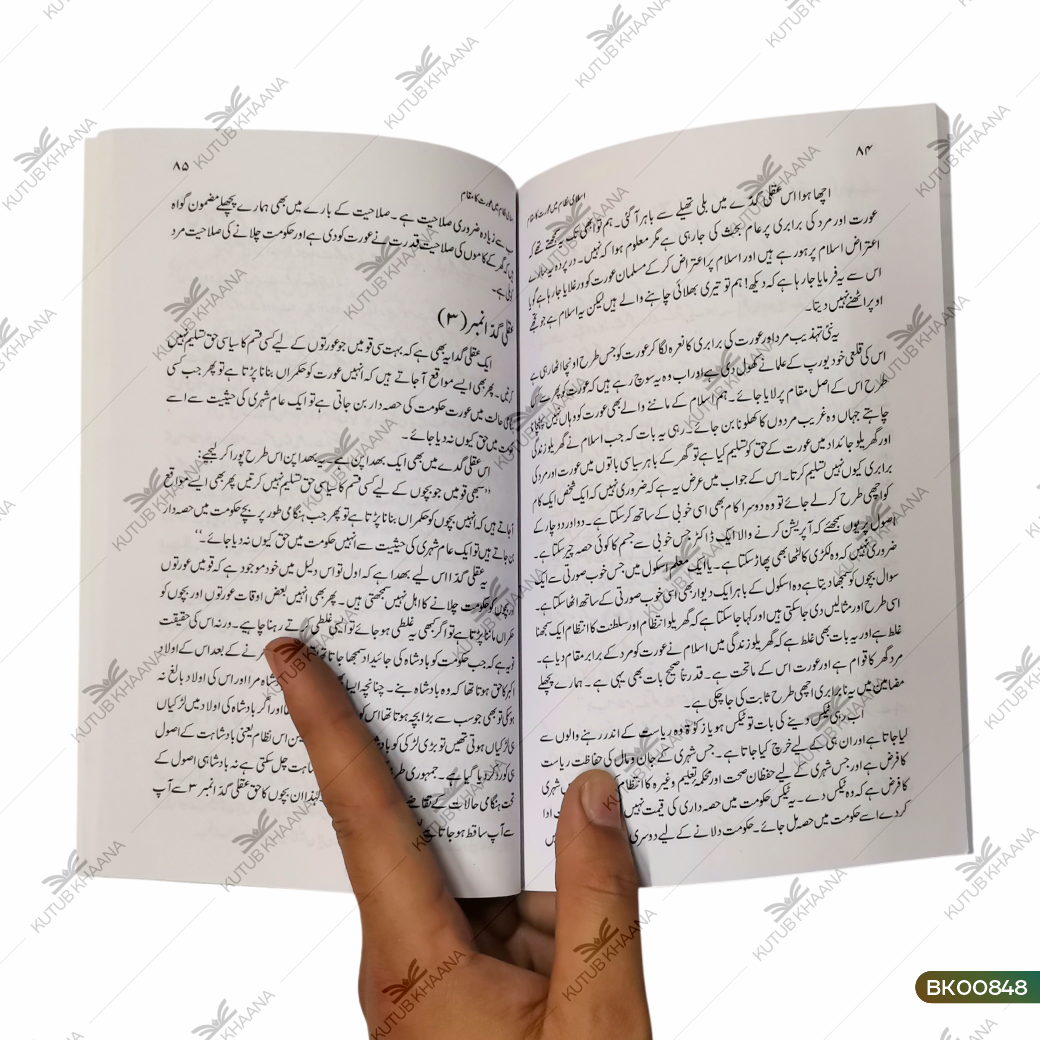 ۸۴
اسلامی نظام میں عورت کا مقام
اچھا ہوا اس عقلی گدّے میں بلی تھیلے سے باہر آ گئی۔ ہم تو ابھی تک یہ سمجھتے تھے کہ
عورت اور مرد کی برابری پر عام بحث کی جارہی ہے مگر معلوم ہوا کہ نہیں۔ در پردہ یہ
اعتراض اسلام پر ہورہے ہیں اور اسلام پر اعتراض کرکے مسلمان عورت کو ورغلایا جارہا ہے گویا
اس سے یہ فرمایا جارہا ہے کہ دیکھ! ہم تو تیری بھلائی چاہنے والے ہیں لیکن یہ اسلام ہے جو تجھے
اوپر اٹھنے نہیں دیتا۔
یہ نئی تہذیب مرد اور عورت کی برابری کا نعرہ لگا کر عورت کو جس طرح اونچا اٹھا رہی ہے
اس کی قلعی خود یورپ کے علما نے کھول دی ہے اور اب وہ یہ سوچ رہے ہیں کہ عورت کو پھر سے
طرح اس کے اصل مقام پر لایا جائے۔ ہم اسلام کے ماننے والے بھی عورت کو وہاں نہیں پہنچانا
چاہتے جہاں وہ غریب مردوں کا کھلونا بن جائے۔ رہی یہ بات کہ جب اسلام نے گھریلو زندگی
اور گھریلو جائداد میں عورت کے حق کو تسلیم کیا ہے تو گھر کے باہر سیاسی باتوں میں عورت اور مرد کی
برابری کیوں نہیں تسلیم کرتا۔ اس کے جواب میں عرض یہ ہے کہ ضروری نہیں کہ ایک شخص ایک کام
کو اچھی طرح کرلے جائے تو وہ دوسرا کام بھی اسی خوبی کے ساتھ کرسکتا ہے۔ دو اور دو چار کے
اصول پر یوں سمجھئے کہ آپریشن کرنے والا ایک ڈاکٹر جس خوبی سے جسم کا کوئی حصہ چیر سکتا ہے۔
ضروری نہیں کہ وہ لکڑی کا لٹھا بھی پھاڑ سکتا ہے۔ یا ایک معلم اسکول میں جس خوب صورتی سے ایک
سوال بچوں کو سمجھا دیتا ہے وہ اسکول کے باہر ایک دیوار بھی اسی خوب صورتی کے ساتھ اٹھا سکتا ہے۔
اسی طرح اور مثالیں دی جاسکتی ہیں اور کہا جاسکتا ہے کہ گھریلو انتظام اور سلطنت کا انتظام ایک سمجھنا
غلط ہے اور یہ بات بھی غلط ہے کہ گھریلو زندگی میں اسلام نے عورت کو مرد کے برابر مقام دیا ہے۔
مرد گھر کا قوام ہے اور عورت اس کے ماتحت ہے۔ قدرتاً صحیح بات بھی یہی ہے۔ ہمارے پچھلے
مضامین میں یہ نابرابری اچھی طرح ثابت کی جاچکی ہے۔
اب رہی ٹیکس دینے کی بات تو ٹیکس ہو یا زکوٰۃ وہ ریاست کے اندر رہنے والوں سے
لیا جاتا ہے اور ان ہی کے لیے خرچ کیا جاتا ہے۔ جس شہری کے جان و مال کی حفاظت ریاست
کا فرض ہے اور جس شہری کے لیے حفظان صحت اور محکمہ تعلیم وغیرہ کا انتظام شہری
کا فرض ہے کہ وہ ٹیکس دے۔ یہ ٹیکس حکومت میں حصہ داری کی قیمت نہیں ادا
کردے اسے حکومت میں حصہ مل جائے۔ حکومت دلانے کے لیے دوسری
۸۵
نظام میں عورت کا مقام
سب سے زیادہ ضروری صلاحیت ہے۔ صلاحیت کے بارے میں بھی ہمارے پچھلے مضمون گواہ
ہیں کہ گھر کے کاموں کی صلاحیت قدرت نے عورت کو دی ہے اور حکومت چلانے کی صلاحیت مرد
کو دی ہے۔
عقلی گدّا نمبر (۳)
ایک عقلی گدا یہ بھی ہے کہ بہت سی قومیں جو عورتوں کے لیے کسی قسم کا سیاسی حق تسلیم نہیں
کرتیں۔ پھر بھی ایسے مواقع آ جاتے ہیں کہ انہیں عورت کو حکمراں بنانا پڑتا ہے تو پھر جب کسی
حالت میں عورت حکومت کی حصہ دار بن جاتی ہے تو ایک عام شہری کی حیثیت سے اسے
حکومت میں حق کیوں نہ دیا جائے۔
اس عقلی گدے میں بھی ایک بھدا پن ہے۔ یہ بھدا پن اس طرح پورا کر لیجیے:
’’سبھی قومیں جو بچوں کے لیے کسی قسم کا سیاسی حق تسلیم نہیں کرتیں پھر بھی ایسے مواقع
آ جاتے ہیں کہ انہیں بچوں کو حکمراں بنانا پڑتا ہے تو پھر جب ہنگامی طور پر بچے حکومت میں حصہ دار
بن جاتے ہیں تو ایک عام شہری کی حیثیت سے انہیں حکومت میں حق کیوں نہ دیا جائے۔‘‘
یہ عقلی گدّا اس لیے بھدا ہے کہ اول تو اس دلیل میں خود موجود ہے کہ قومیں عورتوں
اور بچوں کو حکومت چلانے کا اہل نہیں سمجھتی ہیں۔ پھر بھی انہیں بعض اوقات عورتوں اور بچوں کو
حکمراں ماننا پڑتا ہے تو اگر کبھی یہ غلطی ہو جائے تو ایسی غلطی کرتے رہنا چاہیے۔ ورنہ اس کی حقیقت
تو یہ ہے کہ جب حکومت کو بادشاہ کی جائیداد سمجھا جاتا تھا نے کے بعد اس کے اولاد
اکبر کا حق ہوتا تھا کہ وہ بادشاہ بنے۔ چنانچہ ایسا بھی مرا اور اس کی اولاد بالغ نہ
ہو کی تو بھی جو سب سے بڑا بچہ ہوتا تھا اس کو اور اگر بادشاہ کی اولاد میں لڑکیاں
ہی لڑکیاں ہوتی تھیں تو بڑی لڑکی کو بادشاہ اس نظام یعنی بادشاہت کے اصول
ہی کو رد کر دیا گیا ہے۔ جمہوری چل سکتی ہے نہ بادشاہی اصول کے
تحت ہنگامی حالات کے تقاضے لہٰذا ان بچوں کا حق عقلی گدّا نمبر ۳ سے آپ
سے آپ ساقط ہو جاتا ہے
KUTUB KHAANA
BK00848